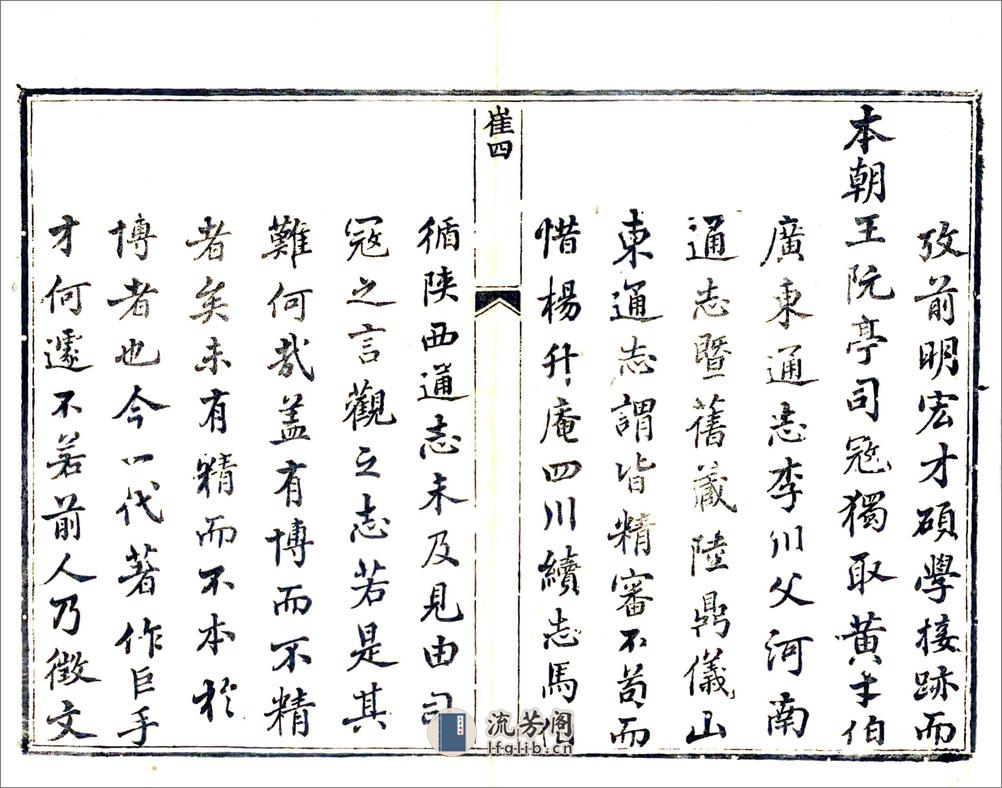 攷前明宏才碩學接跡而
本朝王阮亭司寇獨取黃才伯
廣東通志李川父河南
通志暨舊藏陸鼎儀山
東通志謂皆精審不苟而
惜楊升庵四川續志馬
崔四
循陝西通志未及見由司
寇之言觀之志若是其
難何哉盖有博而不精
者矣未有精而不本於
博者也今一代著作巨手
才何遽不若前人乃徵文
流芳阁
lfglib.cn